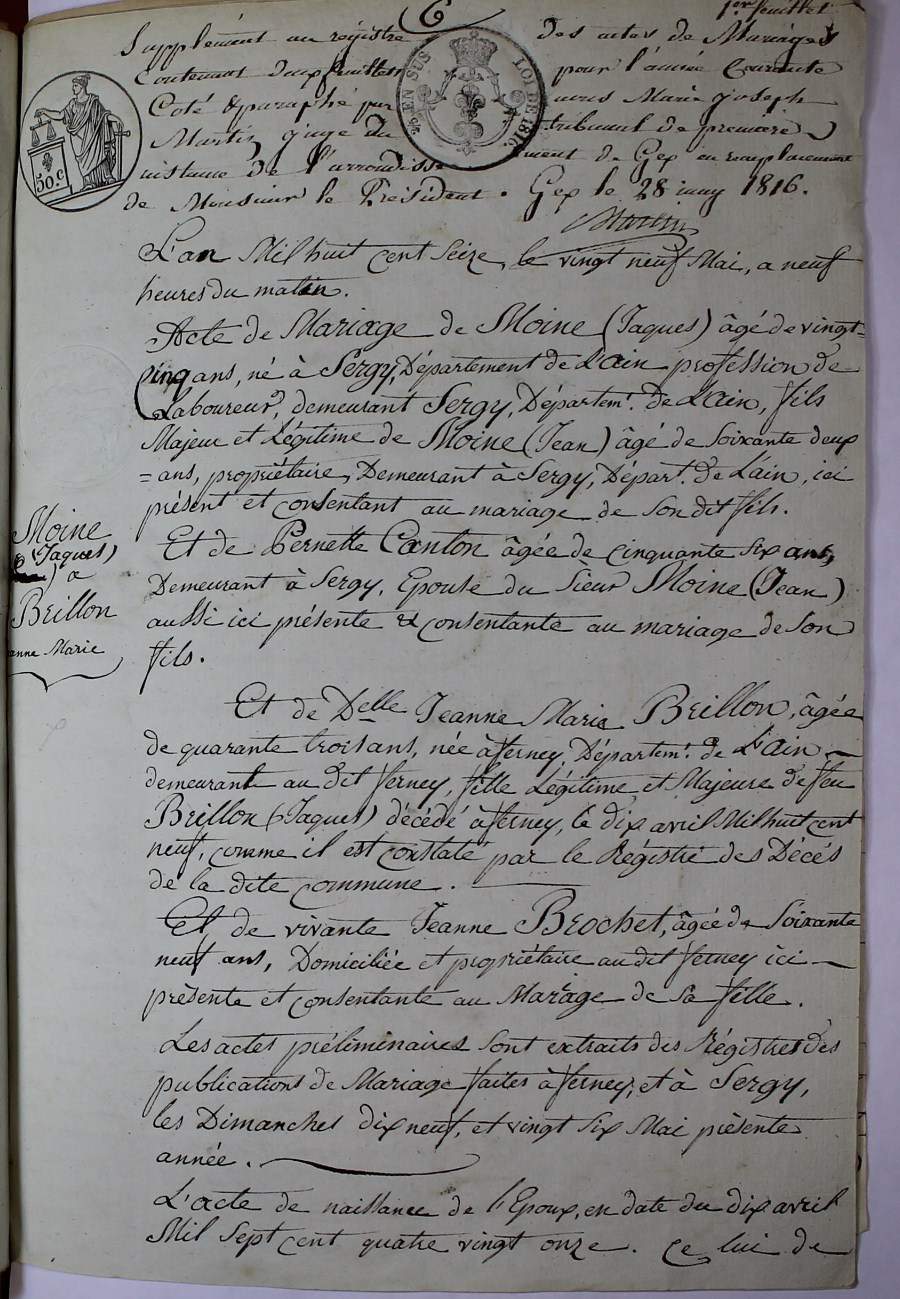 6
1er feuillet
Supplément au régistre des actes de Mariages
Contenant deux feuillets pour l'année Courante
Coté & paraphé par nous Marie joseph
Martin, juge du tribunal de première
instance de l'arrondissement de Gex en remplacement
de Monsieur le Président. Gex le 28 may 1816.
Martin
50.c
EN SUS
LOI DE 1816.
L'an Mil huit cent Seize, le vingt neuf Mai, a neuf
heures du matin.
Acte de Mariage de Moine (Jaques) âgé de vingt-
Cinq ans, né à Sergy, Département de L'ain profession de
Laboureur, demeurant Sergy, Départemt. de L'ain, fils
Majeur et Légitime de Moine (Jean) âgé de Soixante deux
= ans, propriétaire, Demeurant à Sergy, Départ. de L'ain, ici
présent et consentant au mariage de Son dit fils.
Et de Pernette Canton âgée de cinquante Six ans,
Demeurant à Sergy, Epouse du Sieur Moine (Jean)
aussi ici présente & consentante au mariage de Son
fils.
Moine
(Jaques)
a
Brillon
anne Marie
Et de Delle Jeanne Marie Brillon, âgée
de quarante trois ans, née à ferney, Départemt. de L'Ain
demeurant au dit ferney, fille Légitime et Majeure de feu
Brillon (Jaques) décédé à ferney, le dix avril Mil huit cent
neuf, comme il est constaté par le Régistre des Décés
de la dite commune.
Et de vivante Jeanne Brochet, âgée de Soixante
neuf ans, Domiciliée et propriétaire au dit ferney ici
présente et consentante au Mariage de Sa fille.
Les actes préliminaires Sont extraits des Régistres des
publications de Mariage faites à ferney, et à Sergy,
les Dimanches dix neuf, et vingt Six Mai présente
année.
L'acte de naissance de l'Epoux, en date du dix avril
Mil Sept cent quatre vingt onze. Ce lui de